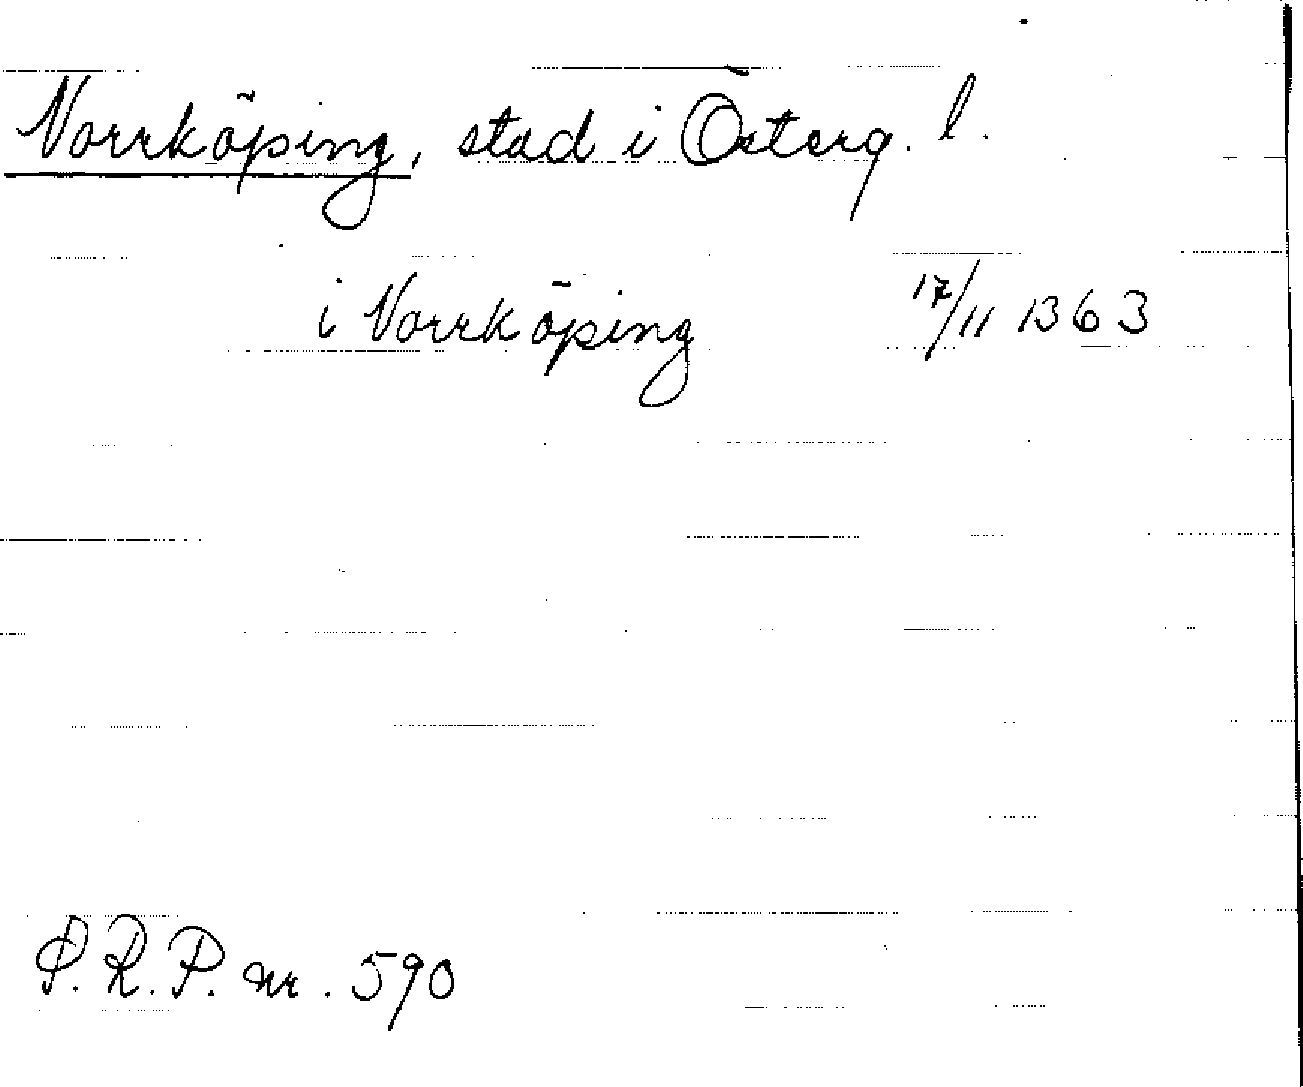 Norrköping, stad i Österg. l.
i Norrköping 17/11 1363
S.R.P. nr. 590